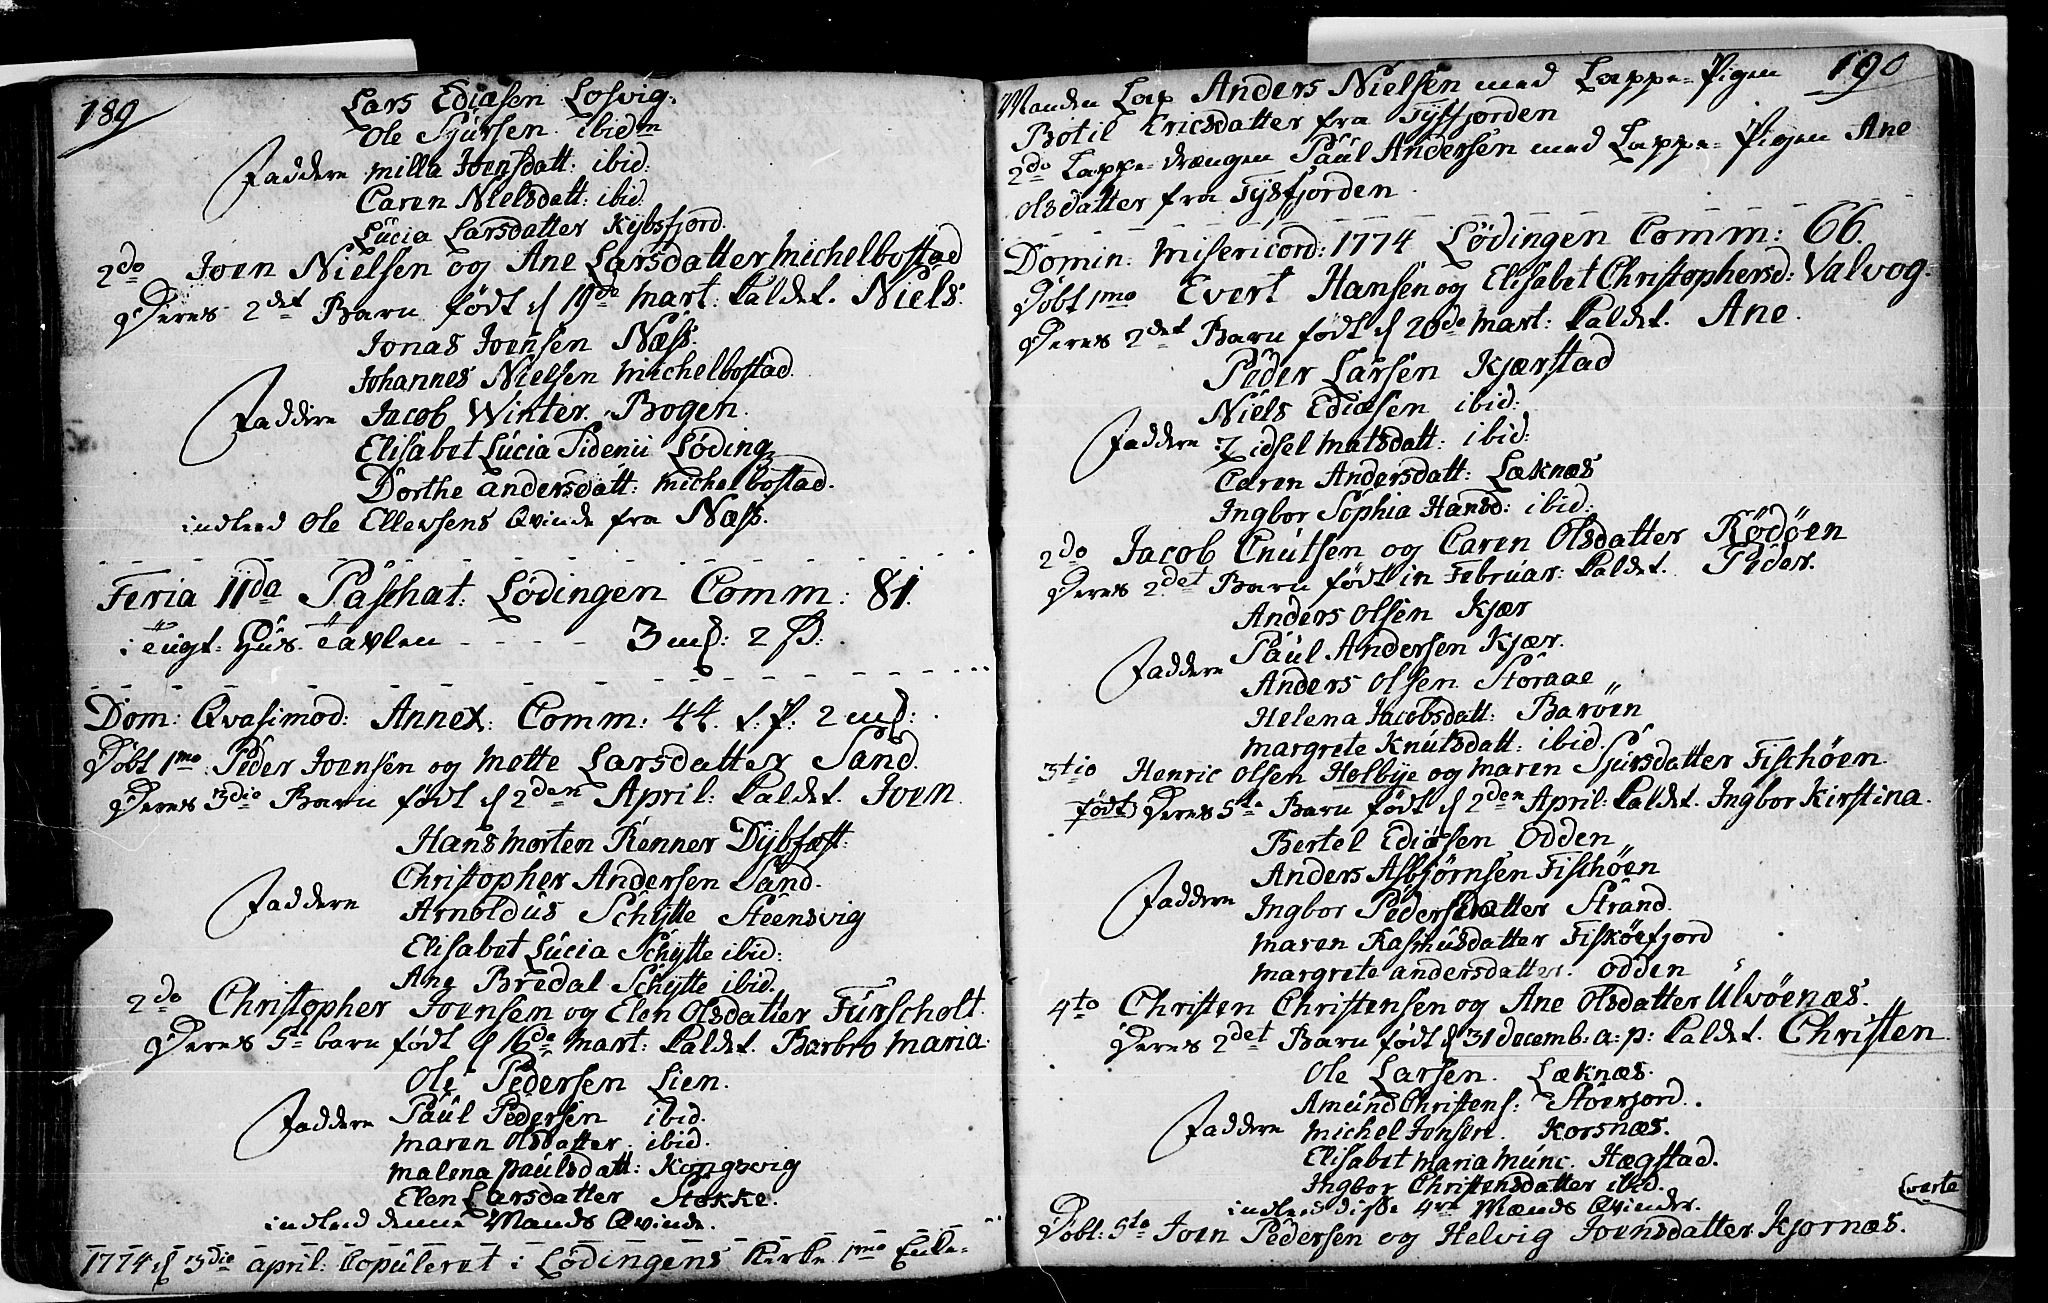 189
Lars Ediasen Losvig.
Ole Sjursen ibidm
Faddere Milla Joensdatt: ibid:
Caren Nielsdatt: ibid.
Lucia Larsdatter Kybsfjord.
2do Joen Nielsen og Ane Larsdatter Michelbostad
Deres 2det Barn født d 19de Mart: kaldet. Niels.
Jonas Joensen Næss.
Johannes Nielsen Michelbostad.
Faddere Jacob Winter. Bogen.
Elisabet Lucia Tidemii Løding
Dorthe Andersdatt: Michelbostad.
indleed Ole Ellevsens Qvinde fra Næss.
Feria IIda Paschat: Lødingen Comm: 81.
i Tugt-Huus-Tavlen - - - - 3 mk: 2 ß:
Dom: Qvasimod: Annex: Comm: 44. t: p: 2 mk:
Døbt 1mo Peder Joensen og Mette Larsdatter Sand.
Deres 3die Barn født d 2den April: kaldet. Joen.
Hans Morten Renner Dybfæst:
Christopher Andersen Sand.
Faddere Arnoldus Schytte Steensvig
Elisabet Lucia Schytte ibid:
Ane Bredal Schytte ibid.
2do Christopher Joensen og Elen Olsdatter Furscholt.
Deres 5te barn født d 16de Mart: kaldet. Barbro Maria.
Ole Pedersen Lien.
Faddere Paul Pedersen ibid.
Maren Olsdatter ibid.
Malena Paulsdatt: Kongsvig
Elen Larsdatter Stokke.
indleed denne Mands Qvinde.
1774 d 3die april: Copuleret i Lødingens Kirke 1mo Enke-
190
Manden Lap Anders Nielsen med Lappe-Pigen
Botil Ericsdatter fra Tysfjorden
2do Lappe-drængen Paul Andersen med Lappe-Pigen Ane
Olsdatter fra Tysfjorden.
Domin: Misericord: 1774 Lødingen Comm: 66.
Døbt 1mo Evert Hansen og Elisabet Christophersd: Valvog-
Deres 2det Barn født d 20de Mart: kaldet. Ane.
Peder Larsen Kjærstad
Niels Ediasen ibid:
Faddere Zidsel Matsdatt: ibid:
Caren Andersdatt: Læknæs
Ingbor Sophia Hansd: ibid:
2do Jacob Cnutsen og Caren Olsdatter Rødøen
Deres 2det Barn født in Februar: kaldet. Peder.
Anders Olsen Kjær
Paul Andersen Kjær.
Faddere
Anders Olsen Storaae
Helena Jacobsdatt: Barøen
Margrete Knutsdatt: ibid.
3tio Henric Olsen Holbye og Maren Sjursdatter Fischøen
født) Deres 5te Barn født d 2den April: kaldet. Ingbor Kirstina.
Bertel Ediasen Odden
Anders Asbjørnsen Fischøen
Faddere Ingbor Pedersdatter Strand.
Maren Rasmusdatter Fiskøefjord
Margrete Andersdatter. Odden
4to Christen Christensen og Ane Olsdatter Ulvøenæs.
Deres 2det Barn født d 31 Decemb. a: p: kaldet. Christen.
Ole Larsen. Læknæs.
Amund Christens: Støerjord.
Faddere Michel Jonsen. Korsnæs.
Elisabet Maria Munc. Hægstad.
Ingbor Christensdatter ibid.
indleed disse 4re Mænds Qvinder.
verte
Døbt: 5to Joen Pedersen og Helvig Joensdatter Kjornæs.